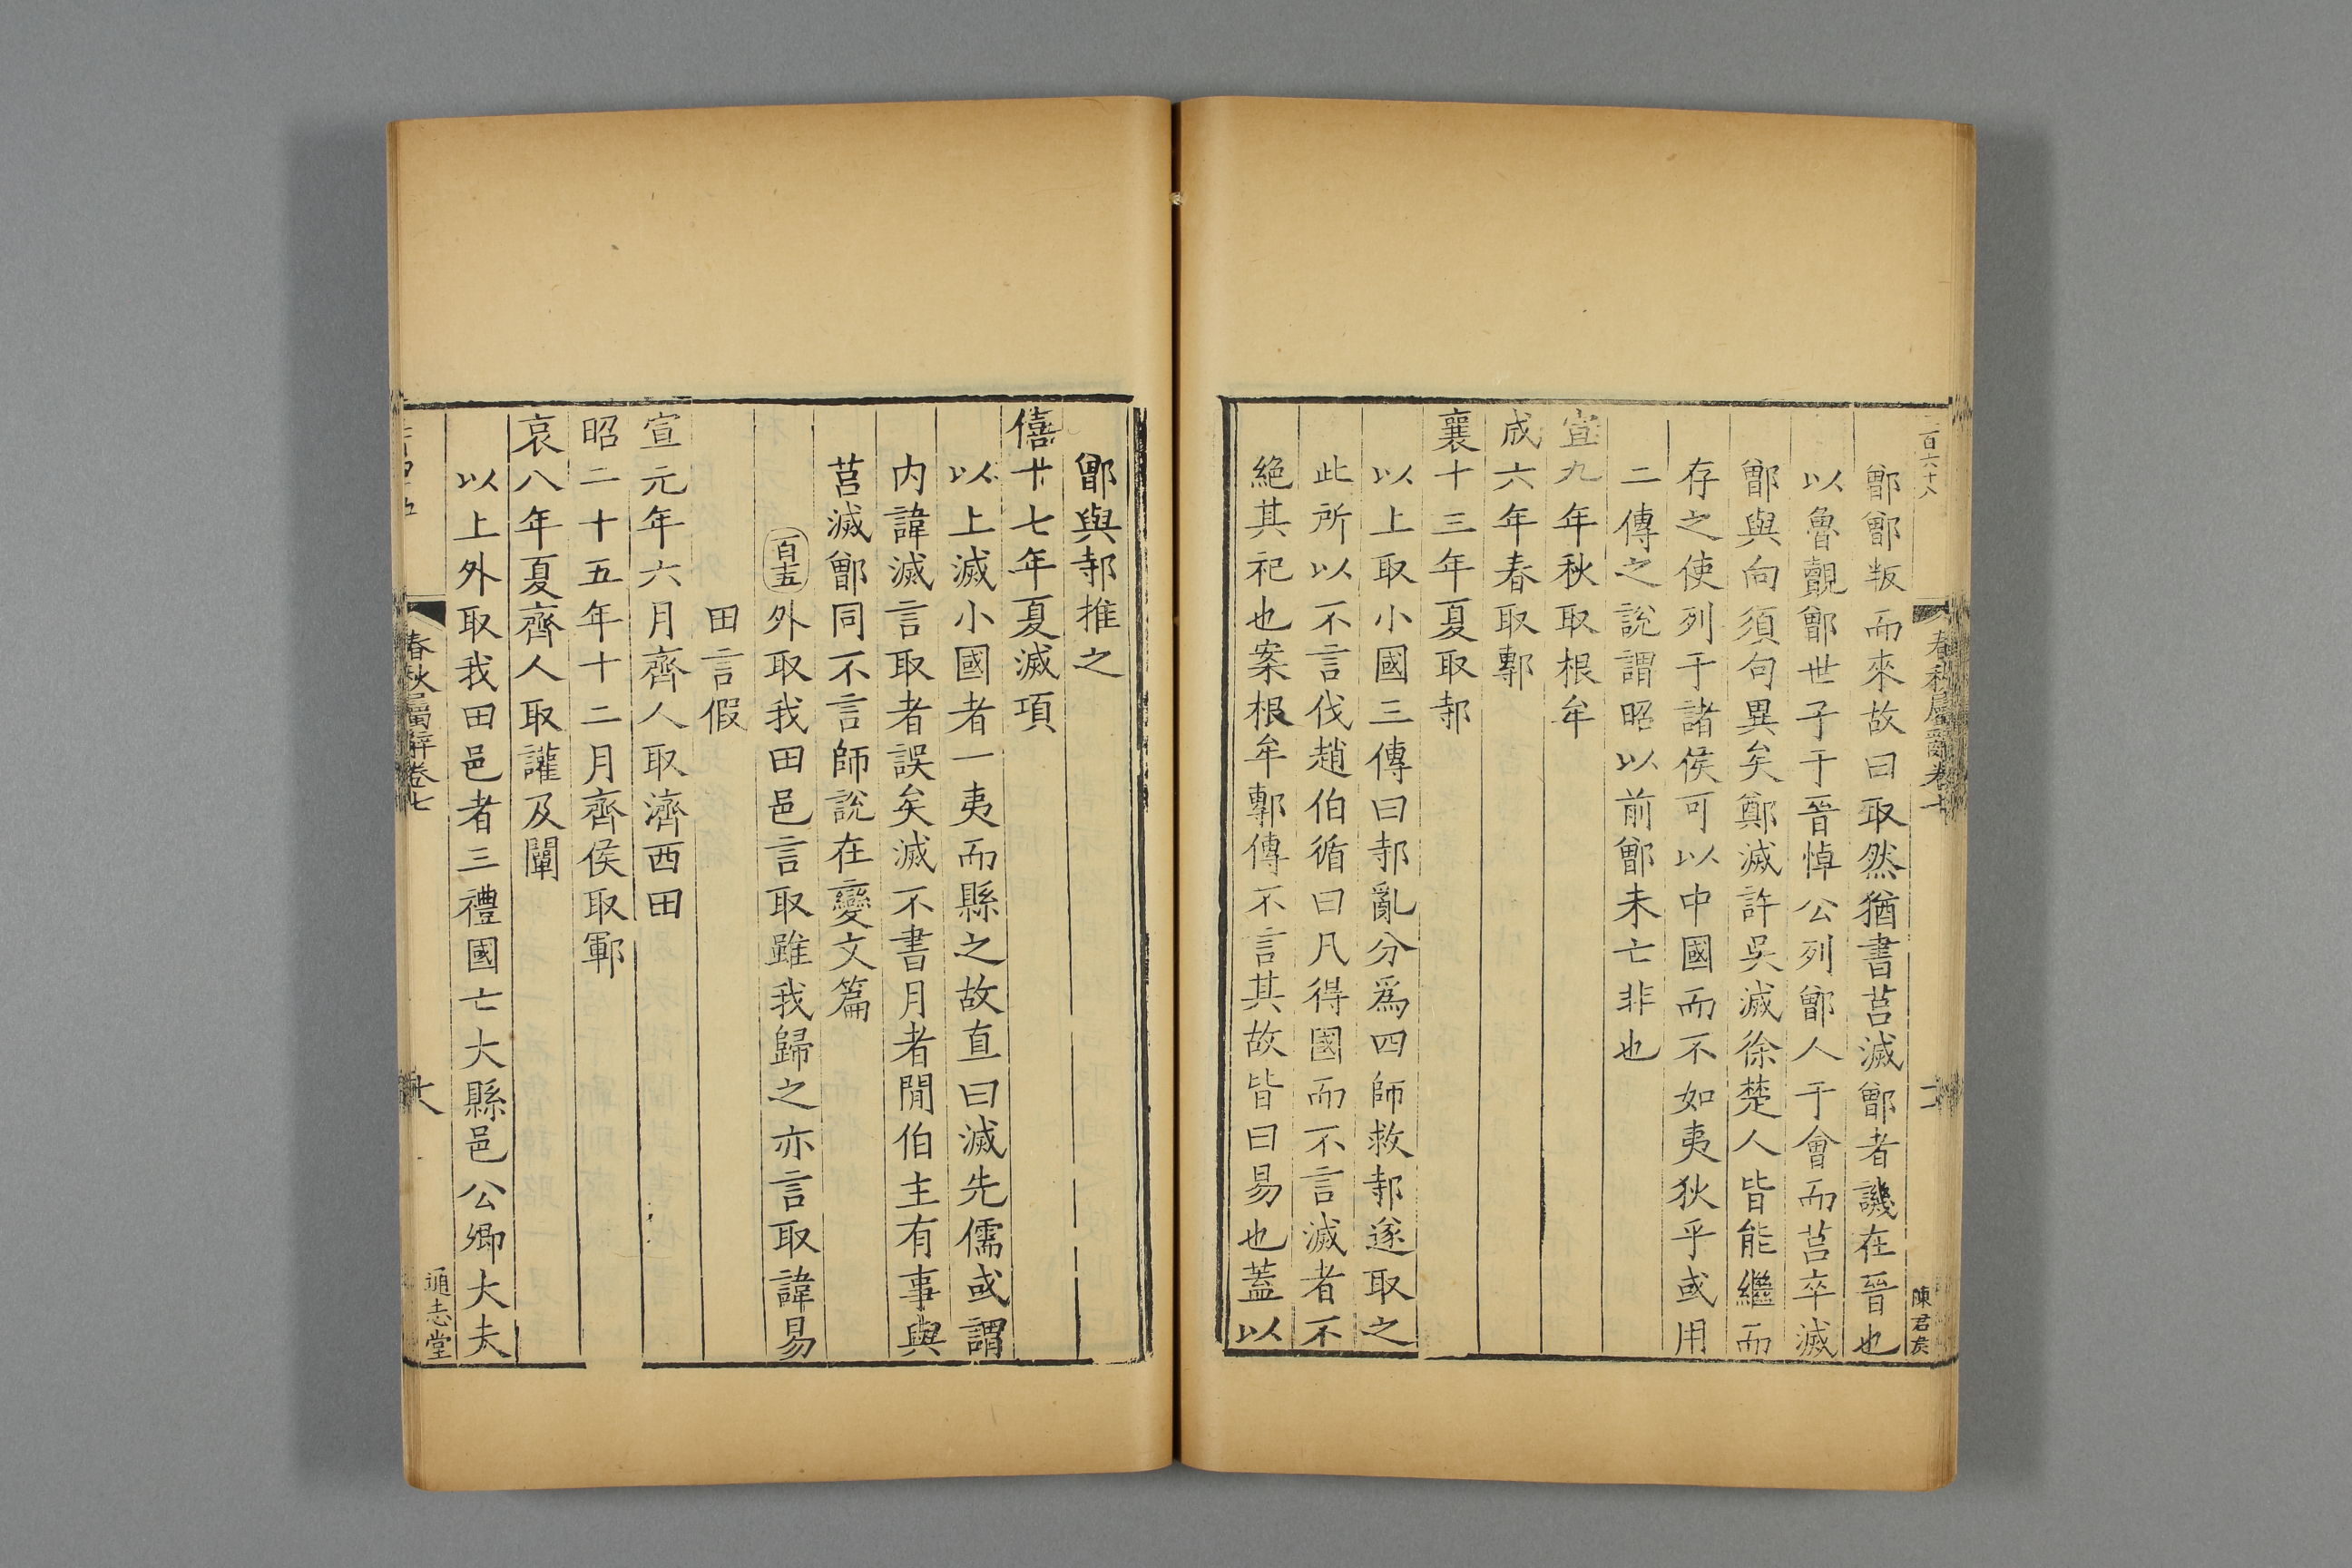 鄫鄫叛而來故曰取然猶書莒滅鄫者譏在晉也
以魯覿鄫世子于晉悼公列鄫人于會而莒卒滅
鄫與向須句異矣鄭滅許吳滅徐楚人皆能繼而
存之使列于諸侯可以中國而不如夷狄乎或用
二傳之說謂昭以前鄫未亡非也
宣九年秋取根牟
成六年春取鄟
襄十三年夏取邿
以上取小國三傳曰邿亂分爲四師救邿遂取之
此所以不言伐趙伯循曰凡得國而不言滅者不
絕其祀也案根牟鄟傳不言其故皆曰易也蓋以
鄫與邿推之
僖十七年夏滅項
以上滅小國者一夷而縣之故直曰滅先儒或謂
内諱滅言取者誤矣滅不書月者閒伯主有事與
莒滅鄫同不言師說在變文篇
百五外取我田邑言取雖我歸之亦言取諱易
田言假
宣元年六月齊人取濟西田
昭二十五年十二月齊侯取鄆
哀八年夏齊人取讙及闡
以上外取我田邑者三禮國亡大縣邑公卿大夫
春秋屬辭卷七
通志堂